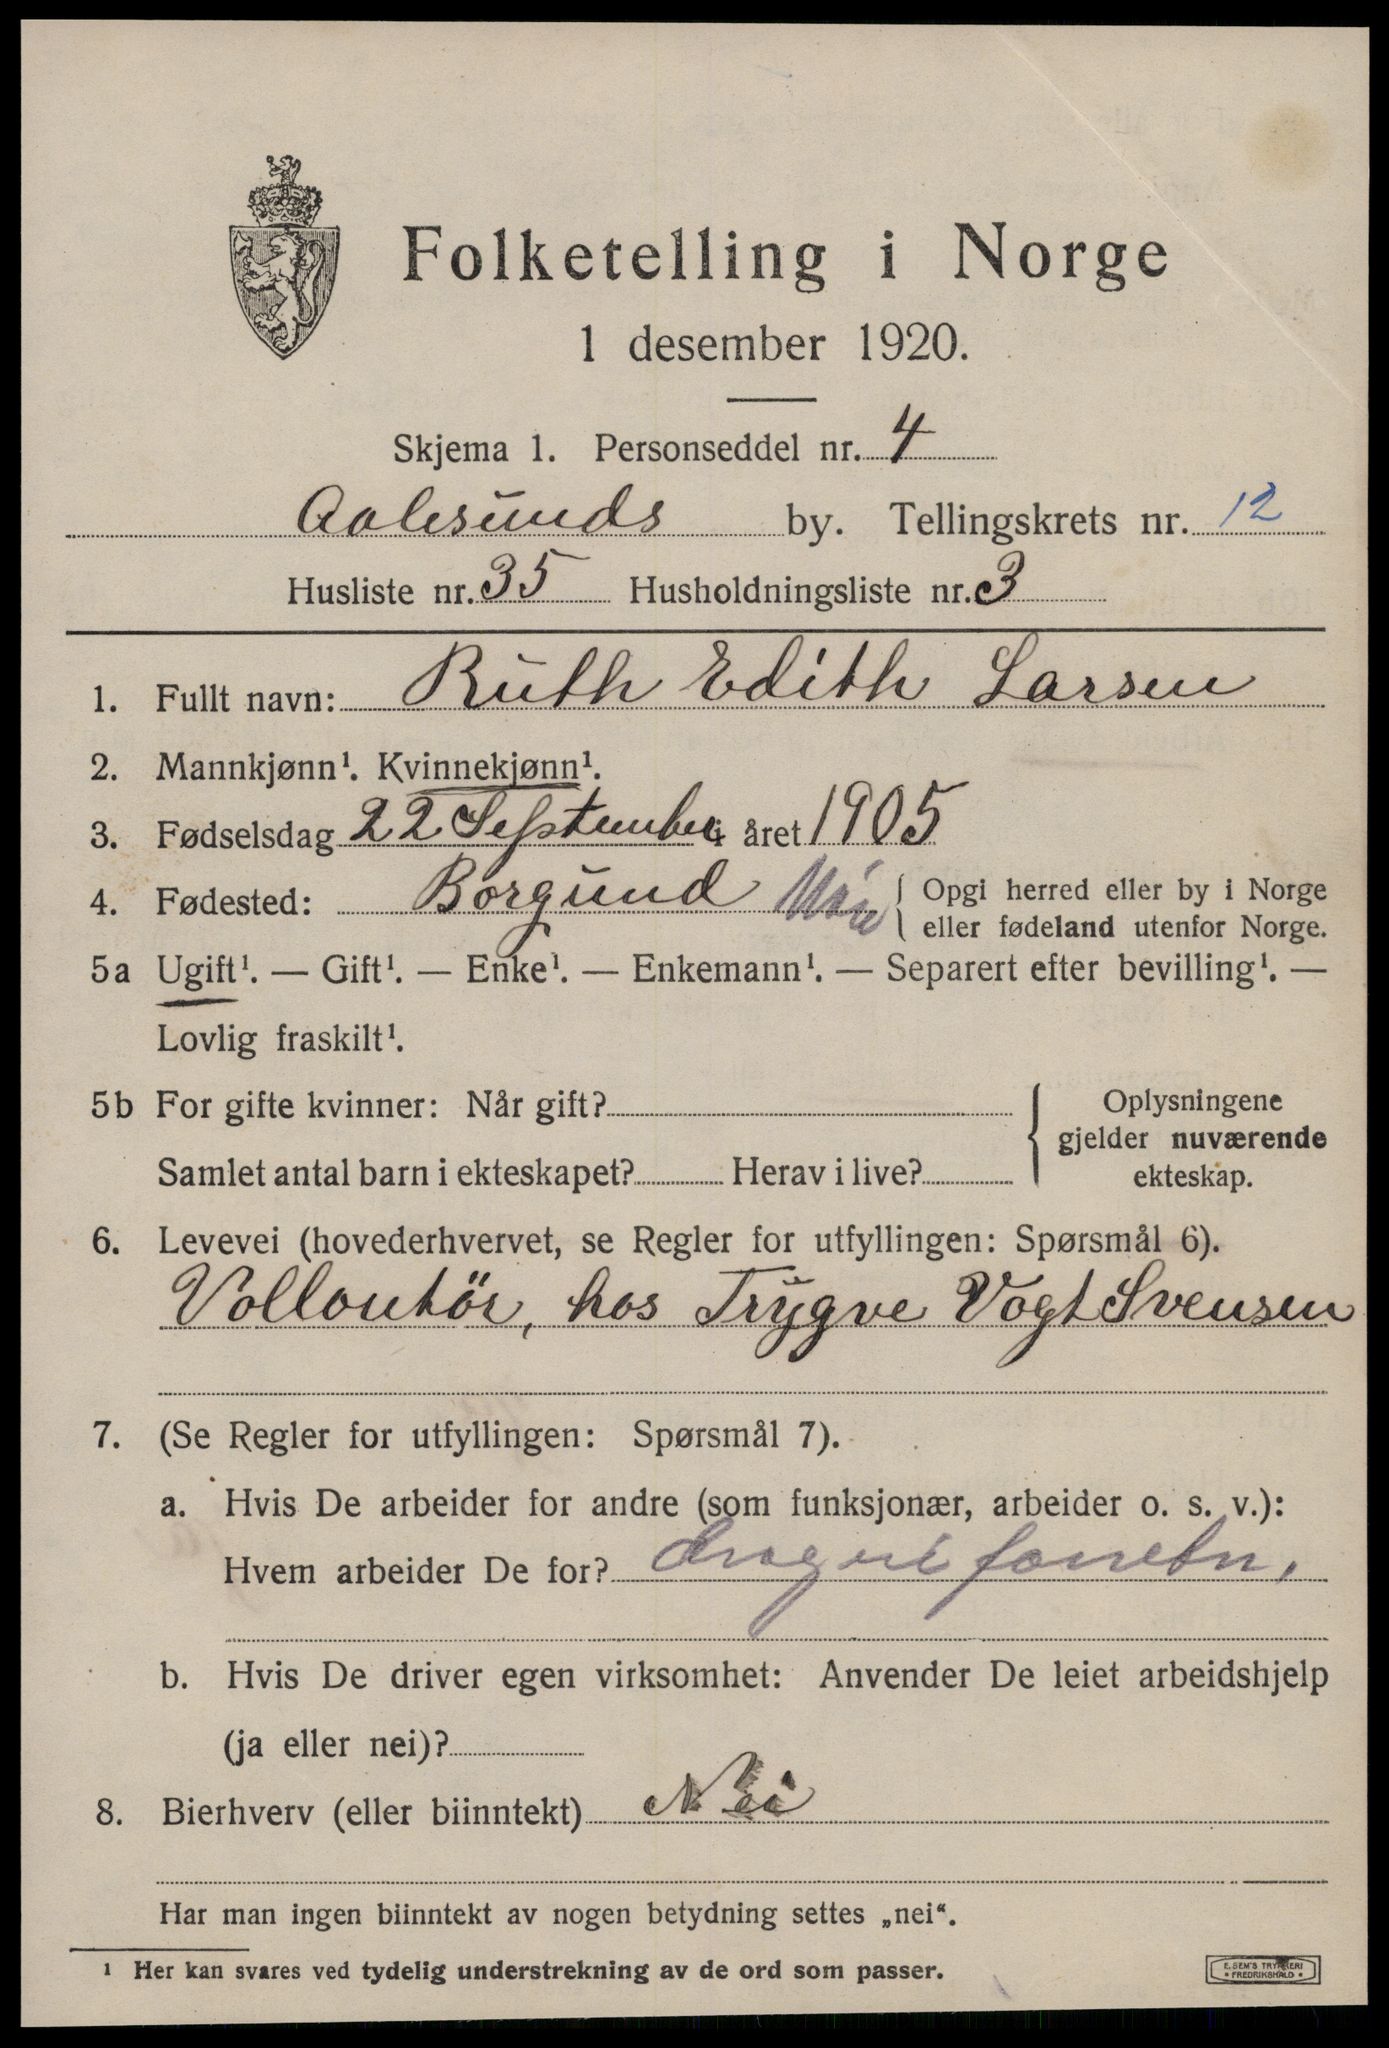 Folketelling i Norge
1 desember 1920.
Skjema 1. Personseddel nr. 4
Aalesunds by. Tellingskrets nr. 12
Husliste nr. 35 Husholdningsliste nr. 3
1. Fullt navn: Ruth Edith Larsen
2. Mannkjønn¹. Kvinnekjønn¹.
3. Fødselsdag 22 September i året 1905
4. Fødested: Borgund Møre { Opgi herred eller by i Norge
eller fødeland utenfor Norge.
5a Ugift¹. — Gift¹. — Enke¹. — Enkemann¹. — Separert efter bevilling¹. —
Lovlig fraskilt¹.
5b For gifte kvinner: Når gift?
Samlet antal barn i ekteskapet? Herav i live?
} Oplysningene
gjelder nuværende
ekteskap.
6. Levevei (hovederhvervet, se Regler for utfyllingen: Spørsmål 6).
Vollontör, hos Trygve Vogt Svensen
7. (Se Regler for utfyllingen: Spørsmål 7).
a. Hvis De arbeider for andre (som funksjonær, arbeider o. s. v.):
Hvem arbeider De for?
b. Hvis De driver egen virksomhet: Anvender De leiet arbeidshjelp
(ja eller nei)?
8. Bierhverv (eller biinntekt) Nei
Har man ingen biinntekt av nogen betydning settes „nei“.
¹ Her kan svares ved tydelig understrekning av de ord som passer.
E. SEM'S TRYKKERI
FREDRIKSHALD